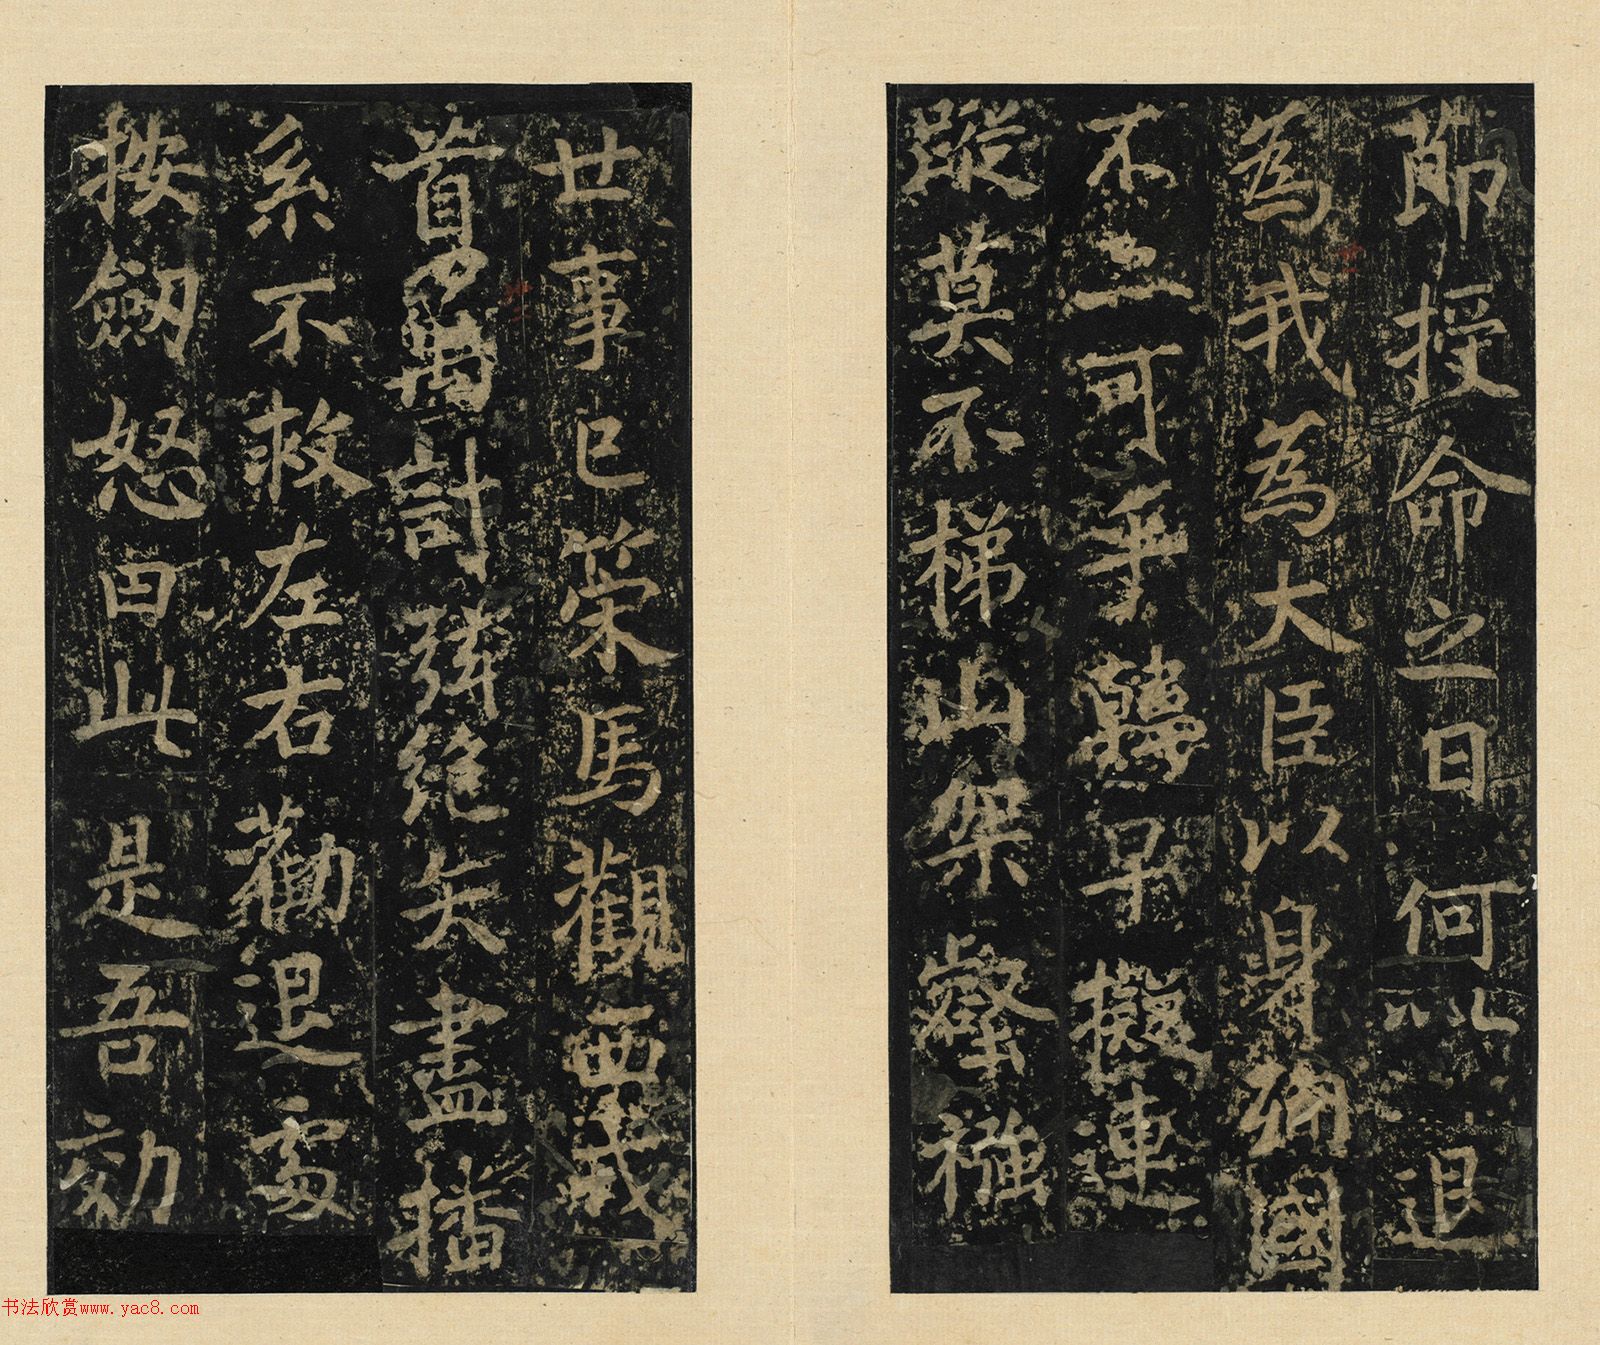 節授命之日何以退
為我為大臣以身國
不可乎早擬連
蹤莫不梯山架壑襁
廿事已策馬觀西戎
首萬計絶矣盡播
系不救左右勸退處
按劒怒曰此是吾効
书法欣赏www.yac8.com